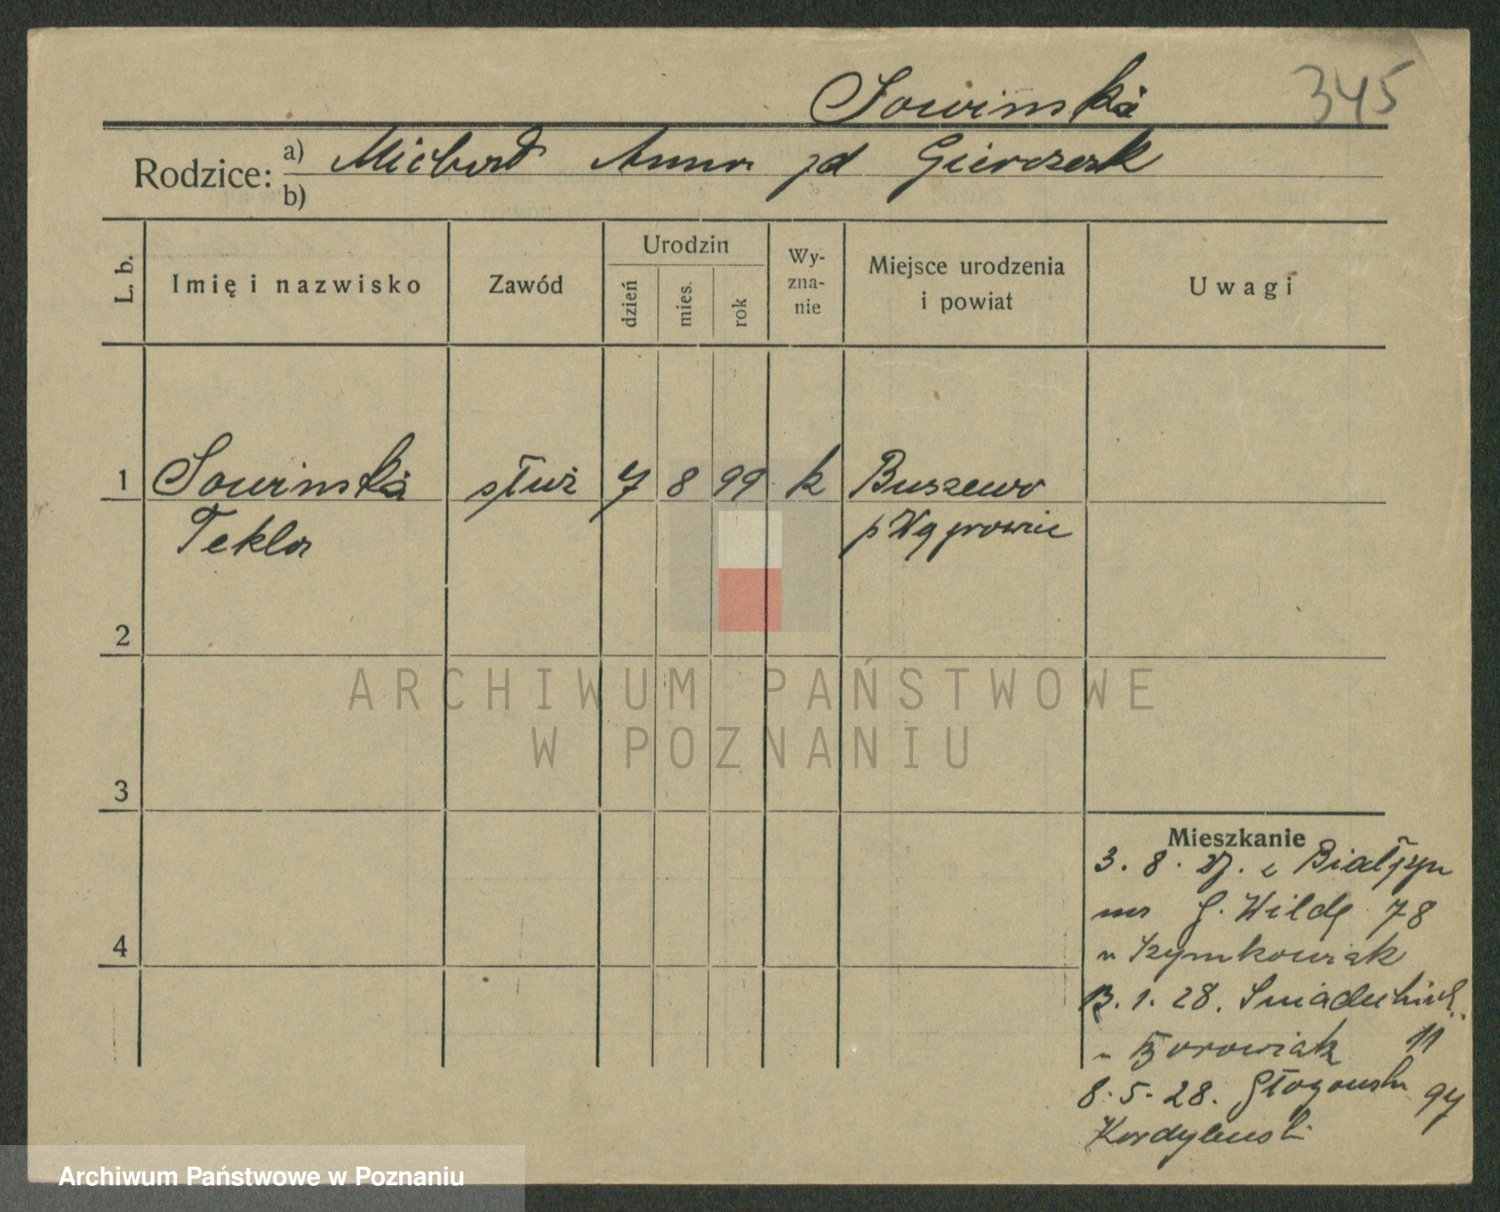 Sowińska 345
Rodzice: a) Michał Anna zd Gierczak
b)
L. b. Imię i nazwisko Zawód Urodzin dzień mies. rok Wy-zna-nie Miejsce urodzenia i powiat Uwagi
1 Sowińska służ 7 8 99 k Buszewo
Tekla p Wągrowiec
2
ARCHIWUM PAŃSTWOWE
W POZNANIU
3
Mieszkanie
3. 8. 27. z Białężyn
na G. Wildę 78
u Szymkowiak
4
13. 1. 28. Śniadeckich
u Borowiak 11
8. 5. 28. Głogowska 94
Kordylewski
Archiwum Państwowe w Poznaniu